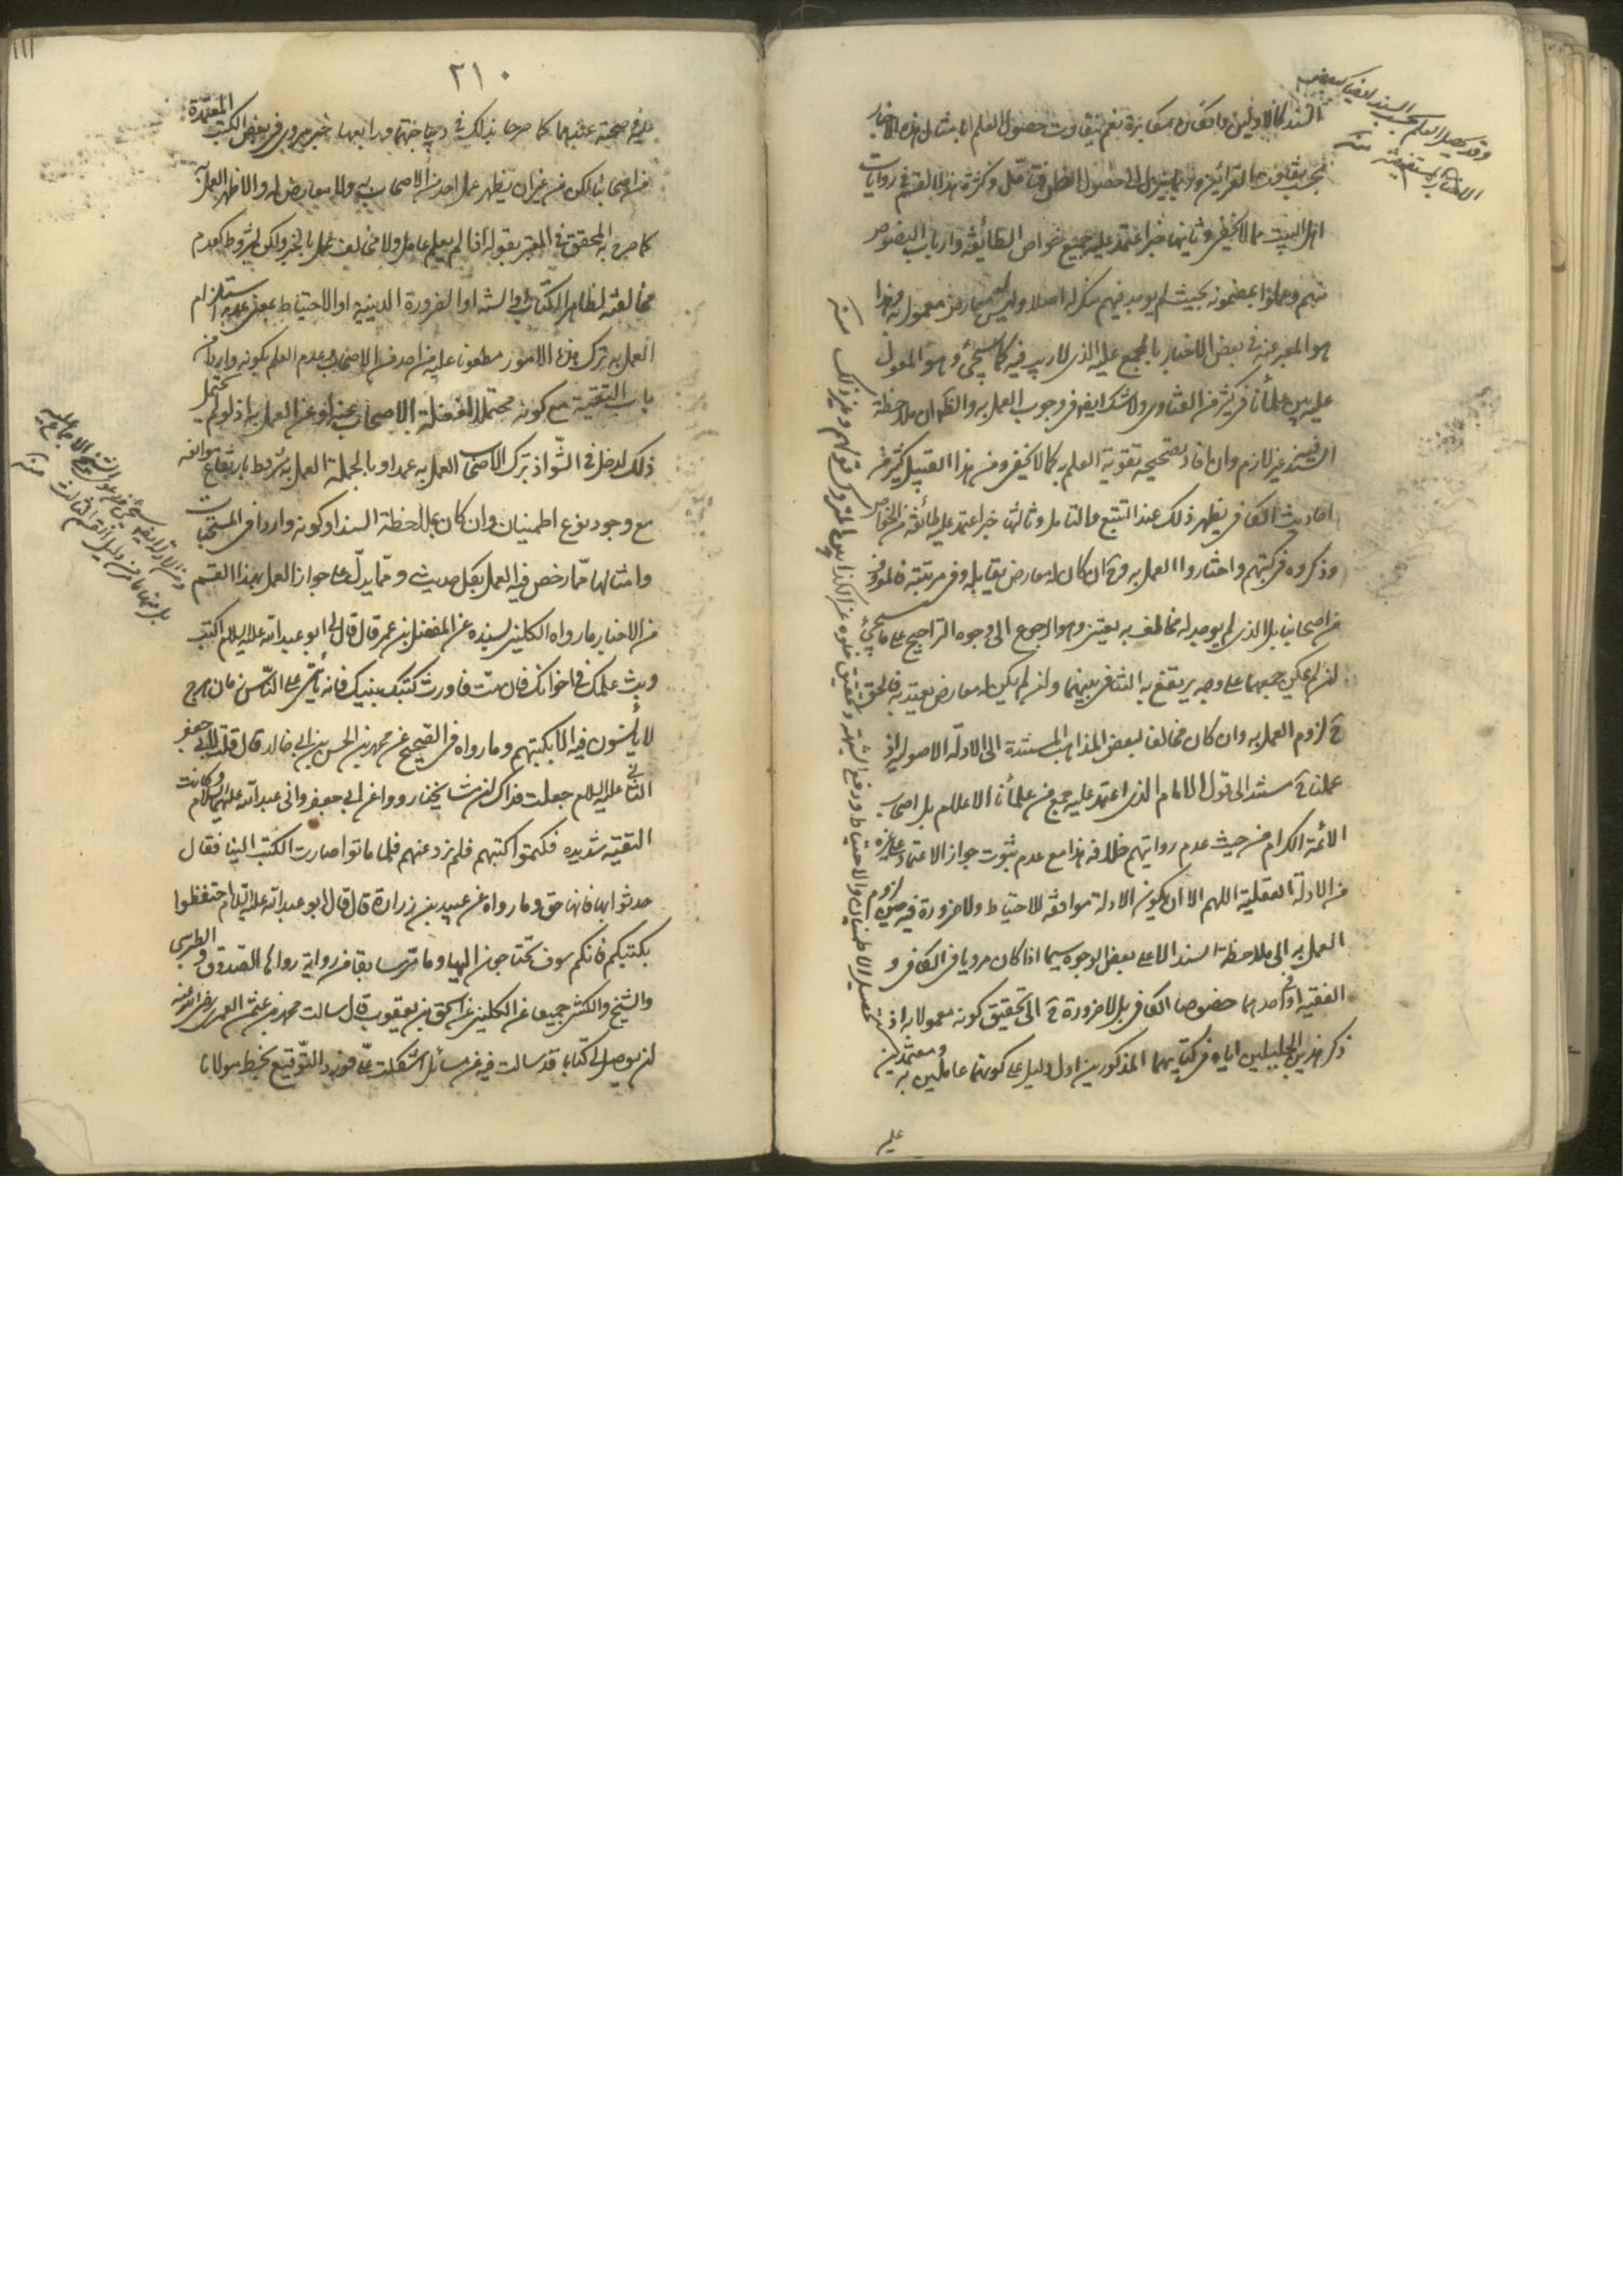 السند كالاولين وانكاره مكابرة نعم يتفاوت حصول العلم بامثال هذه الاخبار
بحسب تفاوت القرائن وربما يتنزل الى حصول الظن فتأمل وكثرة هذا القسم في روايات
اهل البيت مما لا يخفى وثانيها خبر اعتمد عليه جميع خواص الطائفة وارباب النصوص
منهم وعملوا بمضمونه بحيث لم يوجد فيهم منكر له اصلا وليس معارض معمول به وهذا
هو المعبر عنه في بعض الاخبار بالمجمع عليه الذي لا ريب فيه كما سيجئ وهو المعول
عليه بين علمائنا في كثير من الفتاوى ولا شك ايضا في وجوب العمل به والظاهر ان ملاحظة
السند فيه غير لازم وان افاد تصحيحه تقوية العلم به كما لا يخفى ومن هذا القبيل كثير من
احاديث الكافي يظهر ذلك عند التتبع والتامل وثالثها خبر اعتمد عليه طائفة من الخواص
وذكروه في كتبهم واختاروا العمل به وح ان كان له معارض يقابله وفي مرتبته فالموفر
من اصحابنا بل الذي لم يوجد له مخالف به يعتني وهو الرجوع الى وجوه التراجيح على ما سيجئ
ان لم يمكن جمعهما على وجه يرتفع به التنافي بينهما وان لم يكن له معارض يعتد به فالحق
ح لزوم العمل به وان كان مخالفا لبعض المذاهب المستندة الى الادلة الاصولية اذ
عملنا ح مستند الى قول الامام الذي اعتمد عليه جمع من علمائنا الاعلام بل اصحاب
الائمة الكرام من حيث عدم روايتهم خلافه هذا مع عدم ثبوت جواز الاعتماد على غيره
من الادلة العقلية اللهم الا ان يكون الادلة موافقة للاحتياط ولا ضرورة في لزوم
العمل به الى ملاحظة السند الا على بعض الوجوه سيما اذا كان مرويا في الكافي و
الفقيه او احدهما خصوصا الكافي بل لا ضرورة ح الى تحقيق كونه معمولا به اذ
ذكر هذين الجليلين اياه في كتابيهما المذكورين ادل دليل على كونهما عاملين به ومعتمدين
عليه
وقد يحصل العلم بحسب السند ايضا كبعض
الاخبار المستفيضة منه
٢١٠
عليه في صحته عندهما كما صرحا بذلك في ديباجتهما ورابعها خبر مروي في بعض الكتب المعتمدة
من اصحابنا لكن من غير ان يظهر عمل احد من الاصحاب به ولا معارض له والاظهر العمل به
كما صرح به المحقق في المعتبر بقوله اذا لم يعلم عامل ولا مخالف نعمل بالخبر ولكن بشروط كعدم
مخالفته لظاهر الكتاب او السنة او الضرورة الدينية او الاحتياط بمعنى عدم استلزام
العمل به ترك هذه الامور مطعونا عليه من احد من الاصحاب وعدم العلم بكونه واردا من
باب التقية مع كونه محتملا لغفلة الاصحاب عنه او عن العمل به اذ لو لم يحتمل
ذلك لدخل في الشواذ بترك الاصحاب العمل به عمدا وبالجملة العمل به مشروط بارتفاع موانعه
مع وجود نوع اطمينان وان كان بملاحظة السند او كونه واردا في المستحبات
وامثالها مما رخص فيه العمل بكل حديث ومما يدل على جواز العمل بهذا القسم
من الاخبار ما رواه الكليني بسنده عن المفضل بن عمر قال قال لي ابو عبد الله عليه السلام اكتب
وبث علمك في اخوانك فان مت فاورث كتبك بنيك فانه يأتي على الناس زمان هرج
لا يأنسون فيه الا بكتبهم وما رواه في الصحيح عن محمد بن الحسن بن ابي خالد قال قلت لابي جعفر
الثاني عليه السلام جعلت فداك ان مشايخنا رووا عن ابي جعفر وابي عبد الله عليهما السلام وكانت
التقية شديدة فكتموا كتبهم فلم ترو عنهم فلما ماتوا صارت الكتب الينا فقال
حدثوا بها فانها حق وما رواه عن عبيد بن زرارة قال قال ابو عبد الله عليه السلام احتفظوا
بكتبكم فانكم سوف تحتاجون اليها وما مر سابقا من رواية رواها الصدوق والطبرسي
والشيخ والكشي جميعا عن الكليني عن اسحق بن يعقوب قال سالت محمد بن عثمن العمري رضي الله عنه
ان يوصل لي كتابا قد سالت فيه عن مسائل اشكلت علي فورد التوقيع بخط مولانا